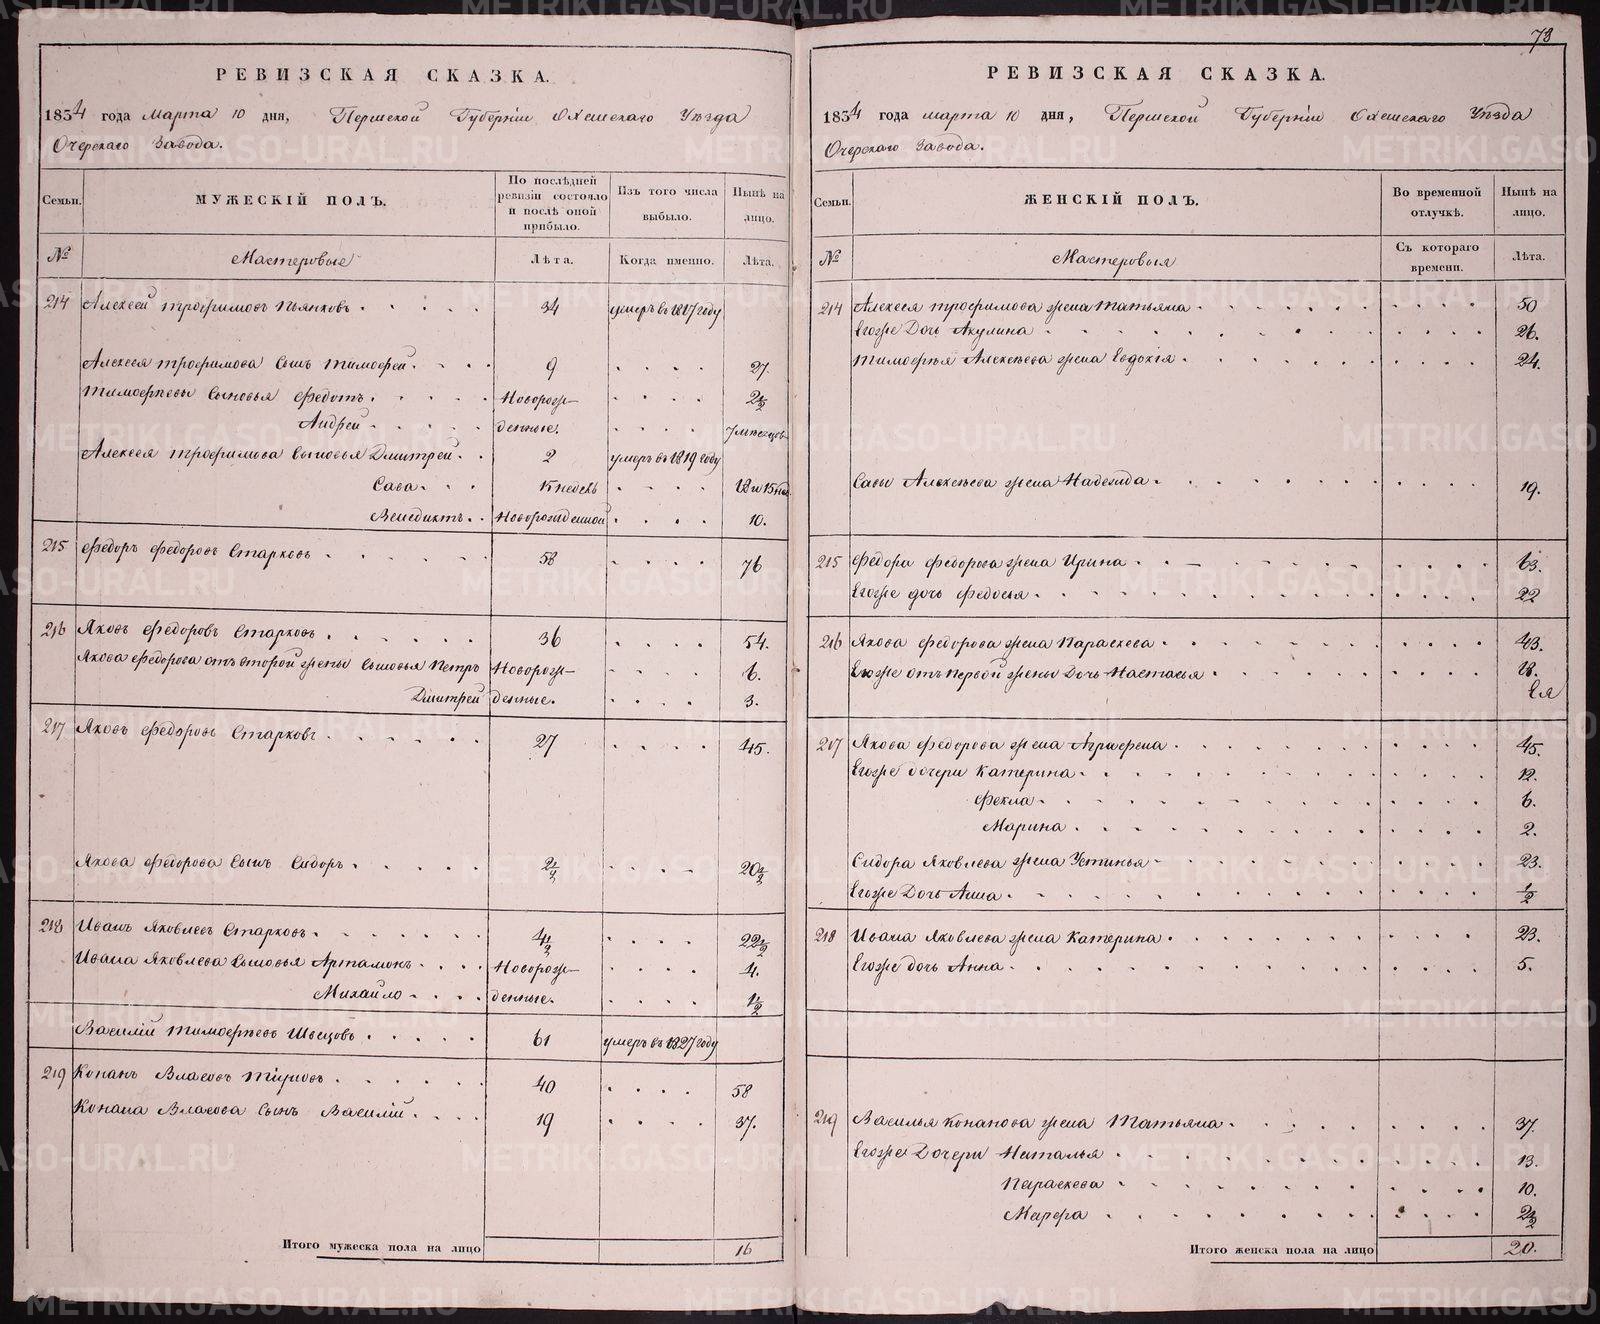 73
РЕВИЗСКАЯ СКАЗКА.
1834 года марта 10 дня, Пермской Губернiи Оханскаго Уѣзда
Очерскаго Завода.
Семьи. МУЖЕСКIЙ ПОЛЪ. По послѣдней ревизiи состояло и послѣ оной прибыло. Изъ того числа выбыло. Нынѣ на лицо.
№ Мастеровые Лѣта. Когда именно. Лѣта.
214 Алексей трофимовъ Пьянковъ 34 умеръ въ 1817 году
Алексея трофимова Сынъ тимофей 9 27.
Тимофеевы Сыновья Федотъ Новорож- 2½
Андрей денные. 7 месяцов
Алексея трофимова Сыновья Дмитрей 2 умеръ въ 1819 году
Сава 15 недель 18 и 15 нед
Венедиктъ Новорожденной 10.
215 Федоръ Федоровъ Старковъ 58 76
216 Яковъ Федоровъ Старковъ 36 54.
Якова Федорова отъ второй жены Сыновья Петръ Новорож- 6.
Дмитрей денные. 3.
217 Яковъ Федоровъ Старковъ 27 45.
Якова Федорова Сынъ Сидоръ 2½ 20½
218 Иванъ Яковлевъ Старковъ 4½ 22½
Ивана Яковлева Сыновья Артамонъ Новорож- 4.
Михайло денные. 1½
Василiй тимофеевъ Швецовъ 61 умеръ въ 1827 году
219 Конанъ Власовъ 40 58
Конана Власова Сынъ Василiй 19 37.
Итого мужеска пола на лицо 16
РЕВИЗСКАЯ СКАЗКА.
1834 года марта 10 дня, Пермской Губернiи Оханскаго Уѣзда
Очерскаго Завода.
Семьи. ЖЕНСКIЙ ПОЛЪ. Во временной отлучкѣ. Нынѣ на лицо.
№ Мастеровыя Съ котораго времени. Лѣта.
214 Алексея трофимова жена Татьяна 50
Егоже Дочь Акулина 26.
Тимофея Алексеева жена Евдокiя 24.
Савы Алексеева жена Надежда 19.
215 Федора Федорова жена Ирина 63.
Егоже дочь Федосья 22
216 Якова Федорова жена Параскева 43.
Егоже отъ первой жены Дочь Настасья 18.
217 Якова Федорова жена Агрифена 45.
Егоже дочери Катерина 12.
Фекла 6.
Марина 2.
Сидора Яковлева жена Устинья 23.
Егоже Дочь Анна ½
218 Ивана Яковлева жена Катерина 23.
Егоже дочь Анна 5.
219 Василья Конанова жена Татьяна 37.
Егоже Дочери Наталья 13.
Параскева 10.
Марфа 2½
Итого женска пола на лицо 20.
METRIKI.GASO-URAL.RU